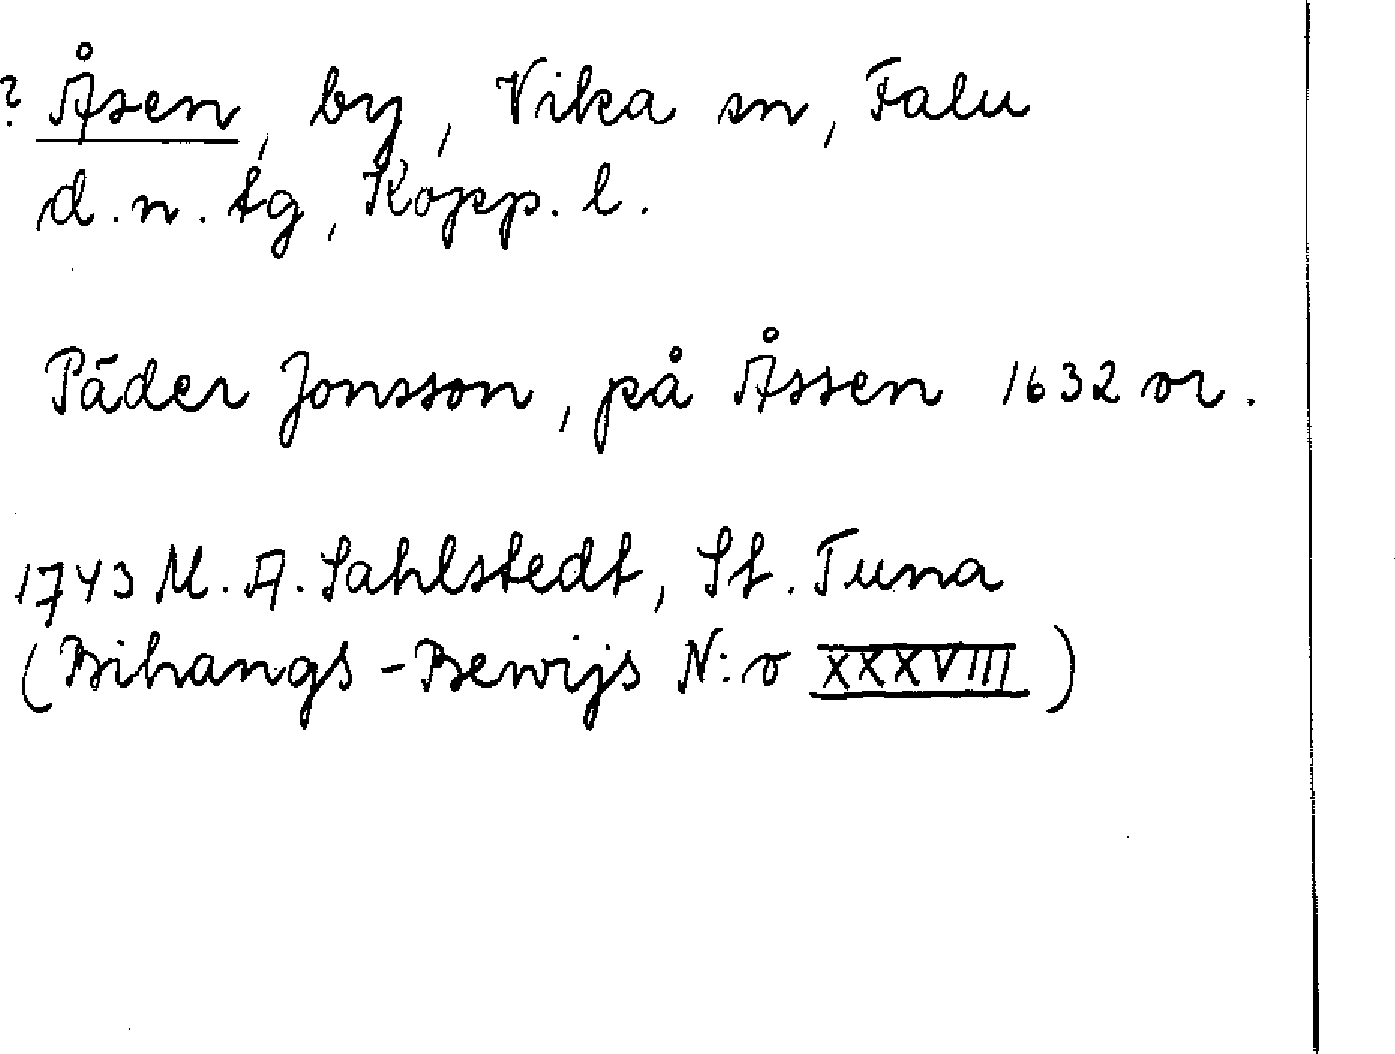 ? Åsen, by, Vika sn, Falu
d.n. tg, Kopp. l.
Päder Jonsson, på Åssen 1632 or.
1743 M. A. Sahlstedt, St. Tuna
(Bihangs-Bewijs N:o XXXVIII)